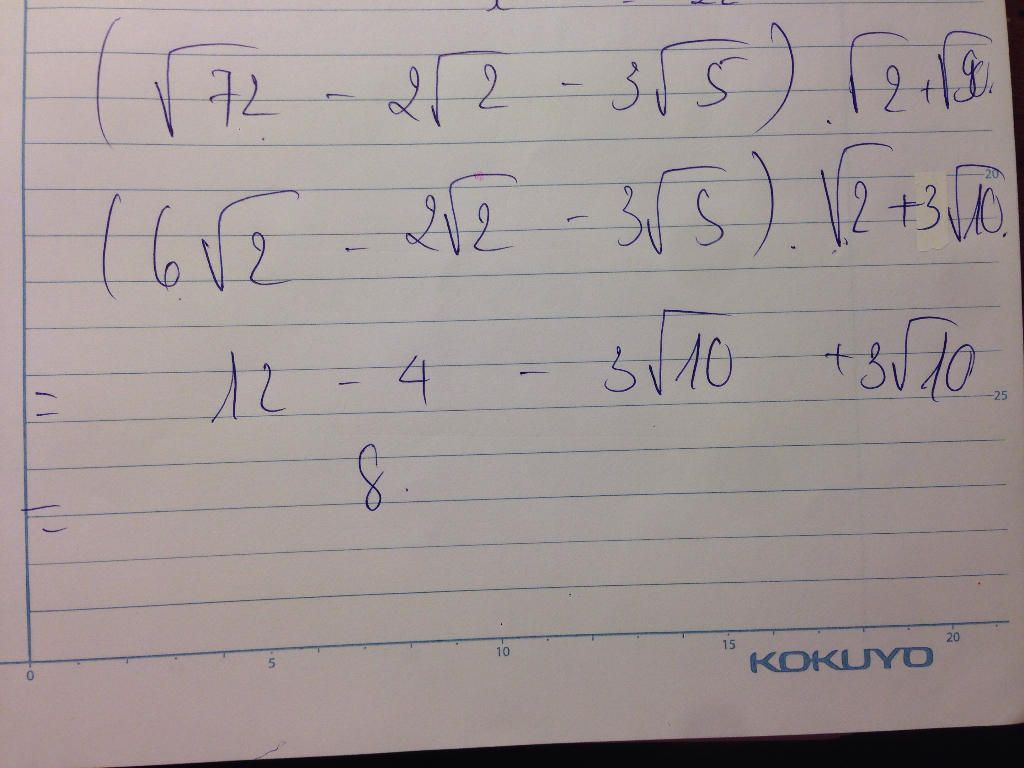 (√72 - 2√2 - 3√5) . √2 + √90.
(6√2 - 2√2 - 3√5) . √2 + 3√10.
20
= 12 - 4 - 3√10 + 3√10
25
= 8.
0 5 10 15 20
KOKUYO